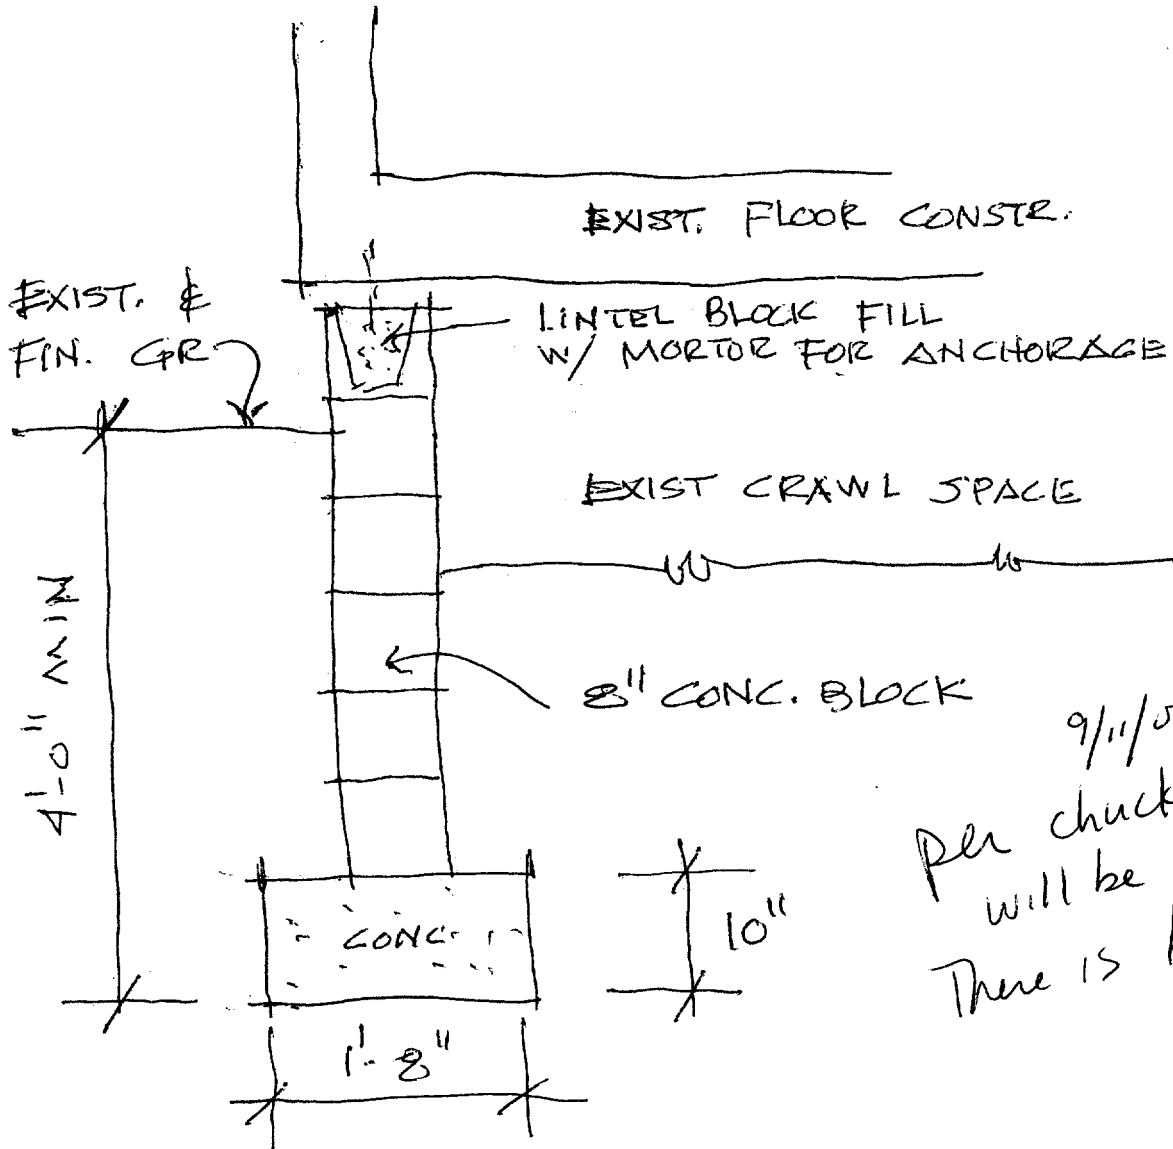 EXIST. FLOOR CONSTR.
EXIST. &
FIN. GR
LINTEL BLOCK FILL
W/ MORTOR FOR ANCHORAGE
EXIST CRAWL SPACE
4'-0" MIN
8" CONC. BLOCK
9/11/0
per chuck
will be
There is
CONC.
10"
1'-8"